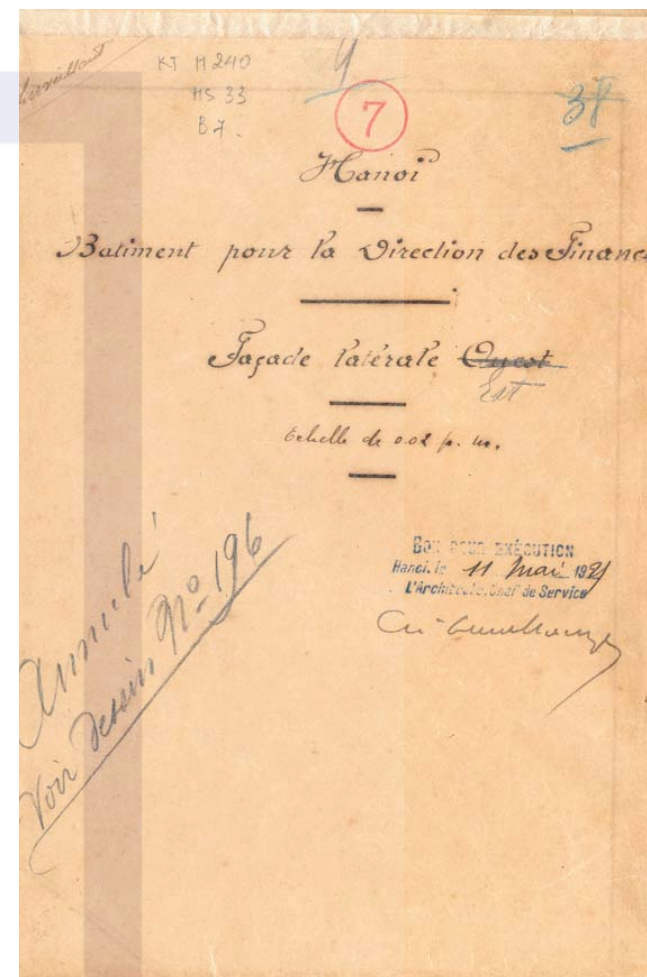 KT M 240
HS 33
B 7.
4
7
38
Hanoi
Batiment pour la Direction des Financ
Façade latérale Ouest
Est
Echelle de 0.02 p. m.
BON POUR EXÉCUTION
Hanoi, le 11 Mai 1925
L'Architecte, Chef de Service
Annulé
Voir Dessin No 196